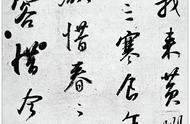 我來黃州
三寒食年
欲惜春〻
容惜今